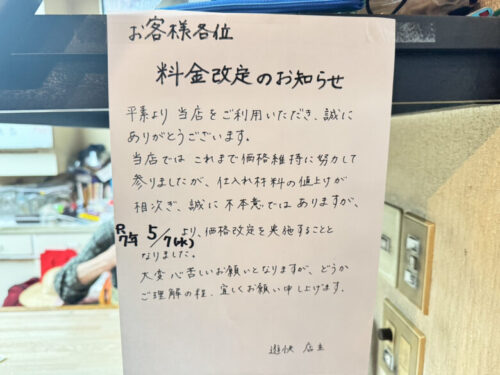 お客様各位
料金改定のお知らせ
平素より当店をご利用いただき、誠に
ありがとうございます。
当店では これまで価格維持に努力して
参りましたが、仕入れ材料の値上げが
相次ぎ、誠に不本意ではありますが、
R7年 5/7(水)より、価格改定を実施することと
なりました。
大変心苦しいお願いとなりますが、どうか
ご理解の程、宜しくお願い申し上げます。
遊快 店主